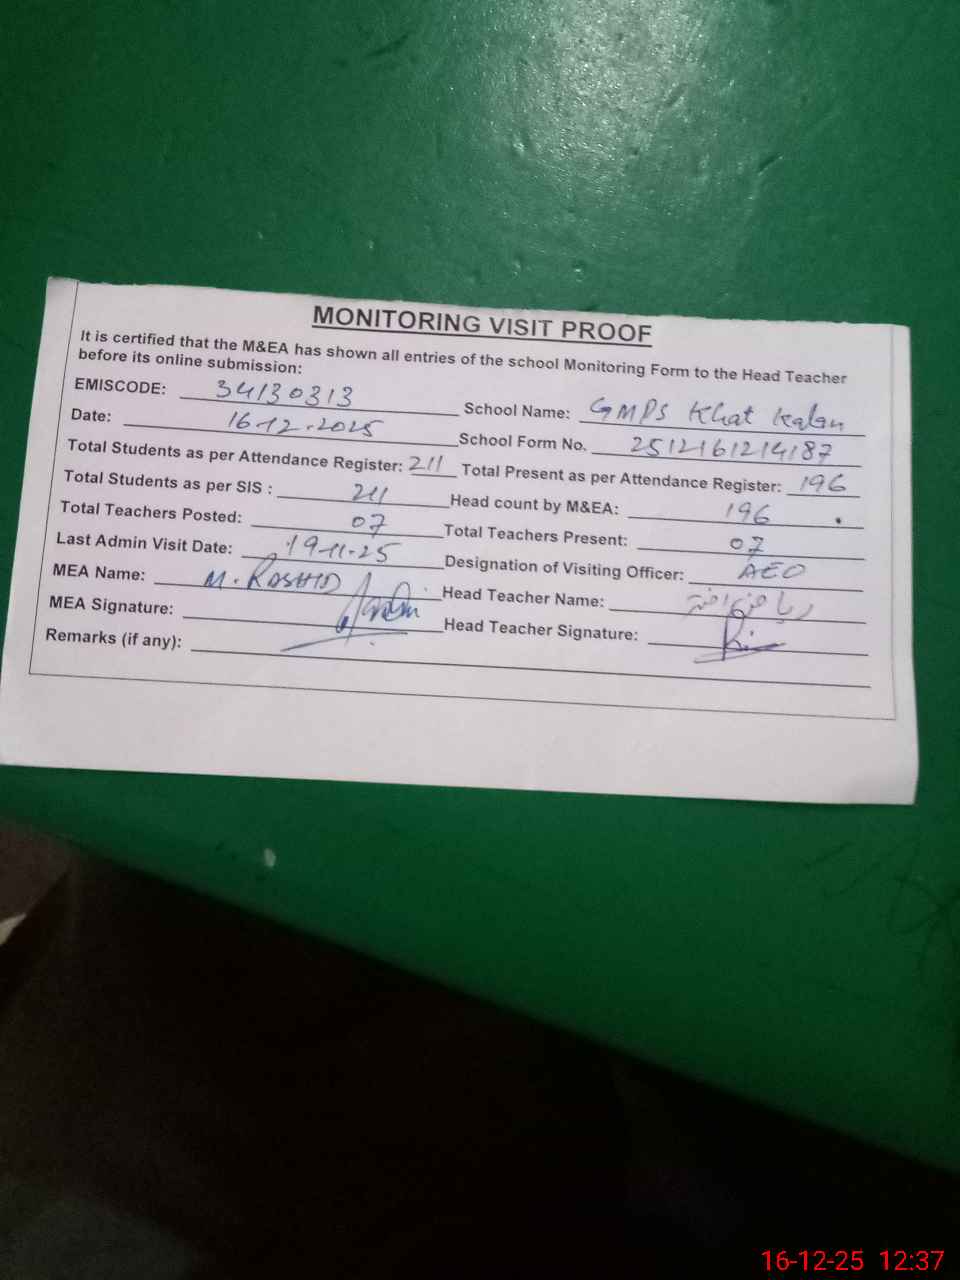 MONITORING VISIT PROOF
It is certified that the M&EA has shown all entries of the school Monitoring Form to the Head Teacher
before its online submission:
EMISCODE: 34130313 School Name: GMPS Khat Kalan
Date: 16-12-2025 School Form No. 2512161214187
Total Students as per Attendance Register: 211 Total Present as per Attendance Register: 196
Total Students as per SIS : 211 Head count by M&EA: 196
Total Teachers Posted: 07 Total Teachers Present: 07
Last Admin Visit Date: 19-11-25 Designation of Visiting Officer: AEO
MEA Name: M. RASHID Head Teacher Name:
MEA Signature: Head Teacher Signature:
Remarks (if any):
16-12-25 12:37